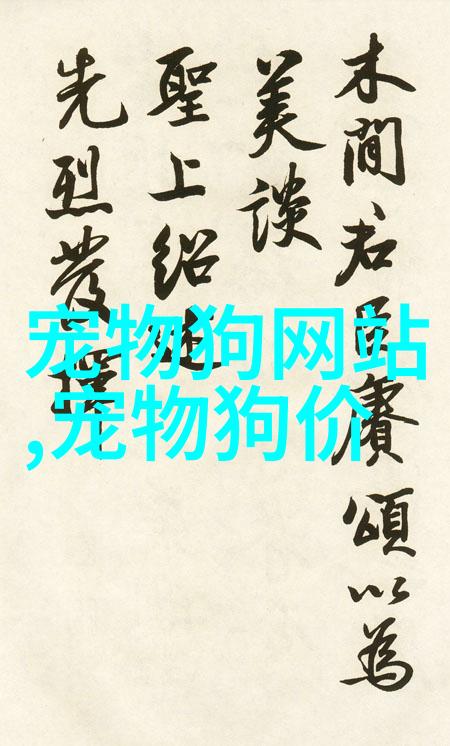 木間君臣賡頌以為
美談
聖上紹
先烈發
宠物狗网站
,宠物狗价